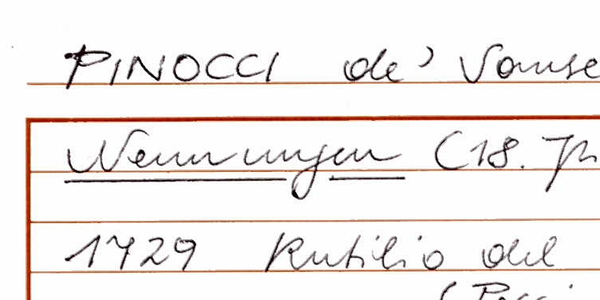 PINOCCI de' Vanse
Nennungen (18. Jh
1729 Rutilio del